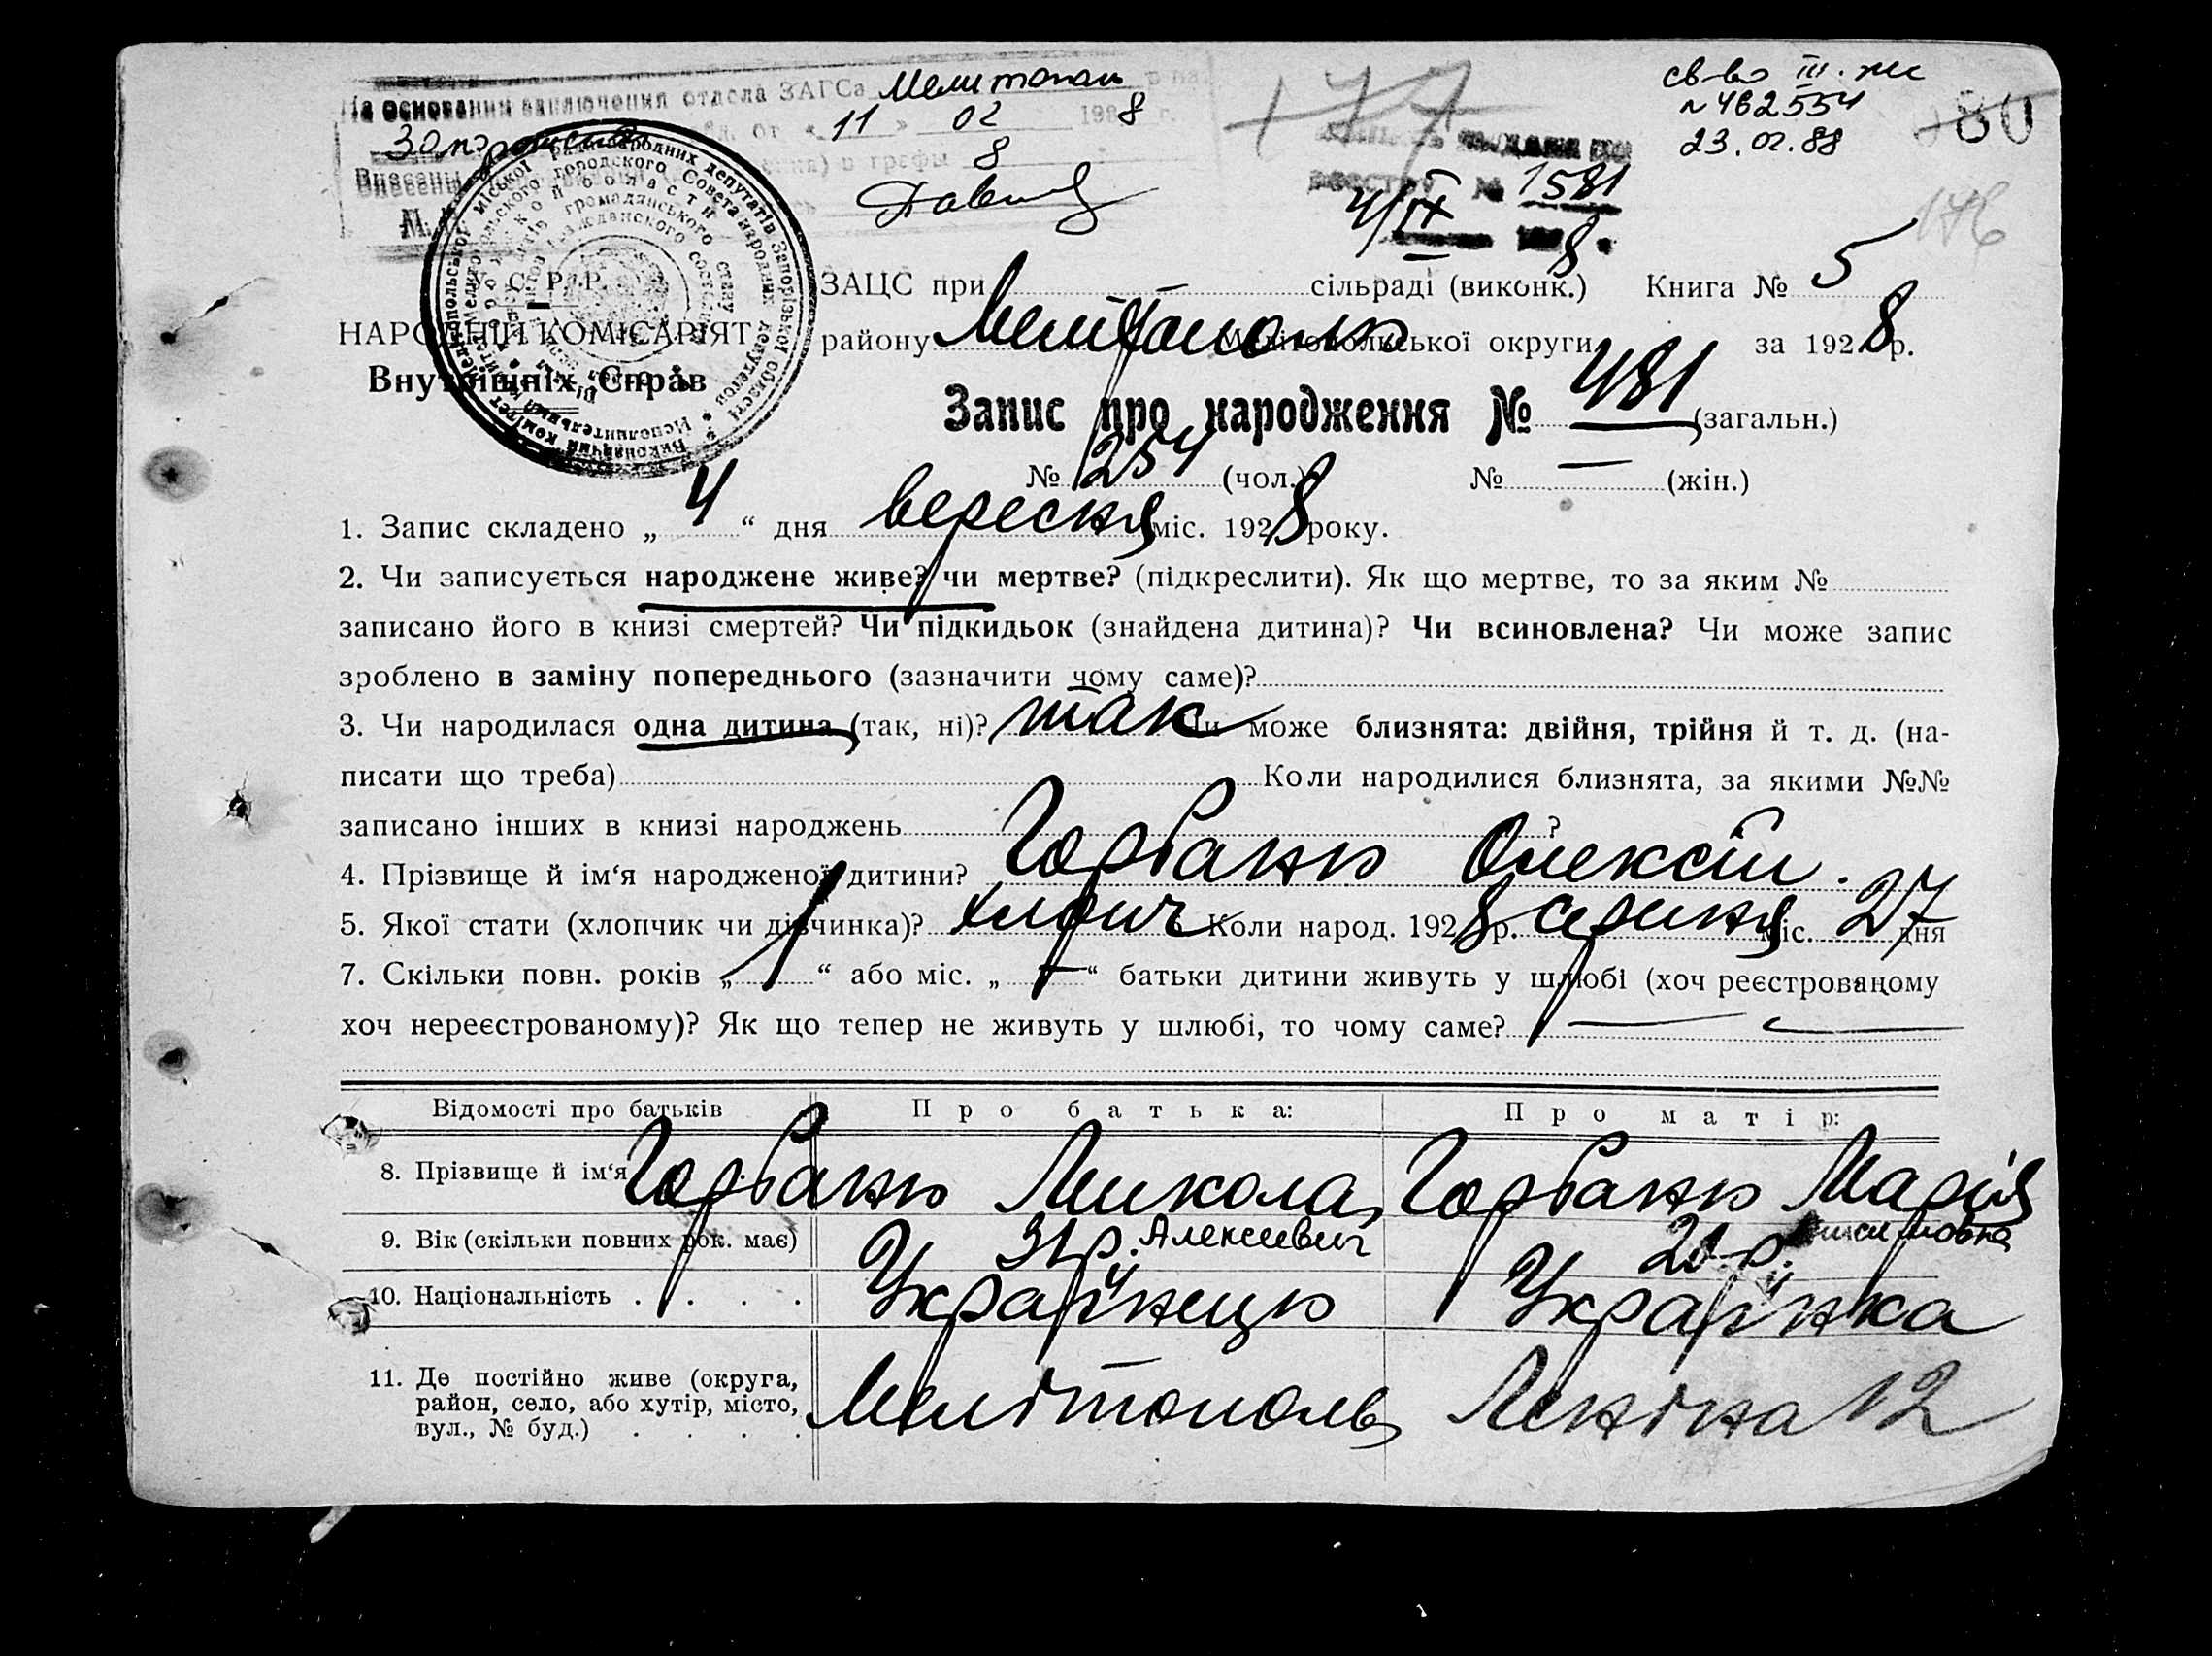 На основании заключения отдела ЗАГСа Мелитополь
от «11» 02 1988 г.
Внесены в графы 8
М.
177
св-во III-жс
№ 462554
23.02.88
80
176
реєстру № 1581
4/IX 8.
У. С. Р. Р.
НАРОДНІЙ КОМІСАРІЯТ
Внутрішніх Справ
ЗАЦС при сільраді (виконк.) Книга № 5
району Мелітополь Мелітопольської округи за 1928 р.
Запис про народження № 481 (загальн.)
№ 254 (чол.) № — (жін.)
1. Запис складено „4“ дня вересня міс. 1928 року.
2. Чи записується народжене живе? чи мертве? (підкреслити). Як що мертве, то за яким №
записано його в книзі смертей? Чи підкидьок (знайдена дитина)? Чи всиновлена? Чи може запис
зроблено в заміну попереднього (зазначити чому саме)?
3. Чи народилася одна дитина (так, ні)? так Чи може близнята: двійня, трійня й т. д. (на-
писати що треба) Коли народилися близнята, за якими №№
записано інших в книзі народжень ?
4. Прізвище й ім‘я народженої дитини? Горбань Олексій.
5. Якої стати (хлопчик чи дівчинка)? хлопч Коли народ. 1928 р. серпня міс. 27 дня
7. Скільки повн. років „1“ або міс. „—“ батьки дитини живуть у шлюбі (хоч реєстрованому
хоч нереєстрованому)? Як що тепер не живуть у шлюбі, то чому саме? — —
Відомості про батьків Про батька: Про матір:
8. Прізвище й ім‘я Горбань Микола Горбань Марія
9. Вік (скільки повних рок. має) 31 р. Алексеевич р.
10. Національність . . . . Українець Українка
11. Де постійно живе (округа,
район, село, або хутір, місто,
вул., № буд.) . . . . Мелітополь Леніна 12